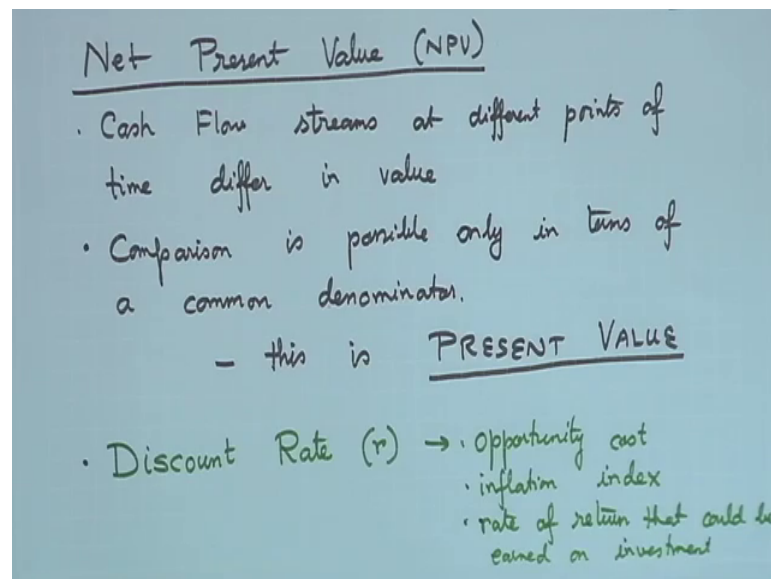 Net Present Value (NPV)
· Cash Flow streams at different points of
time differ in value
· Comparison is possible only in terms of
a common denominator.
– this is PRESENT VALUE
· Discount Rate (r) → · opportunity cost
· inflation index
· rate of return that could be
earned on investment